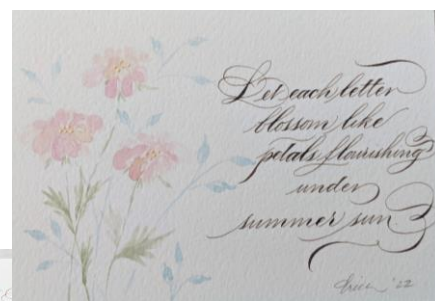 Let each letter
blossom like
petals flourishing
under
summer sun
Erica '22